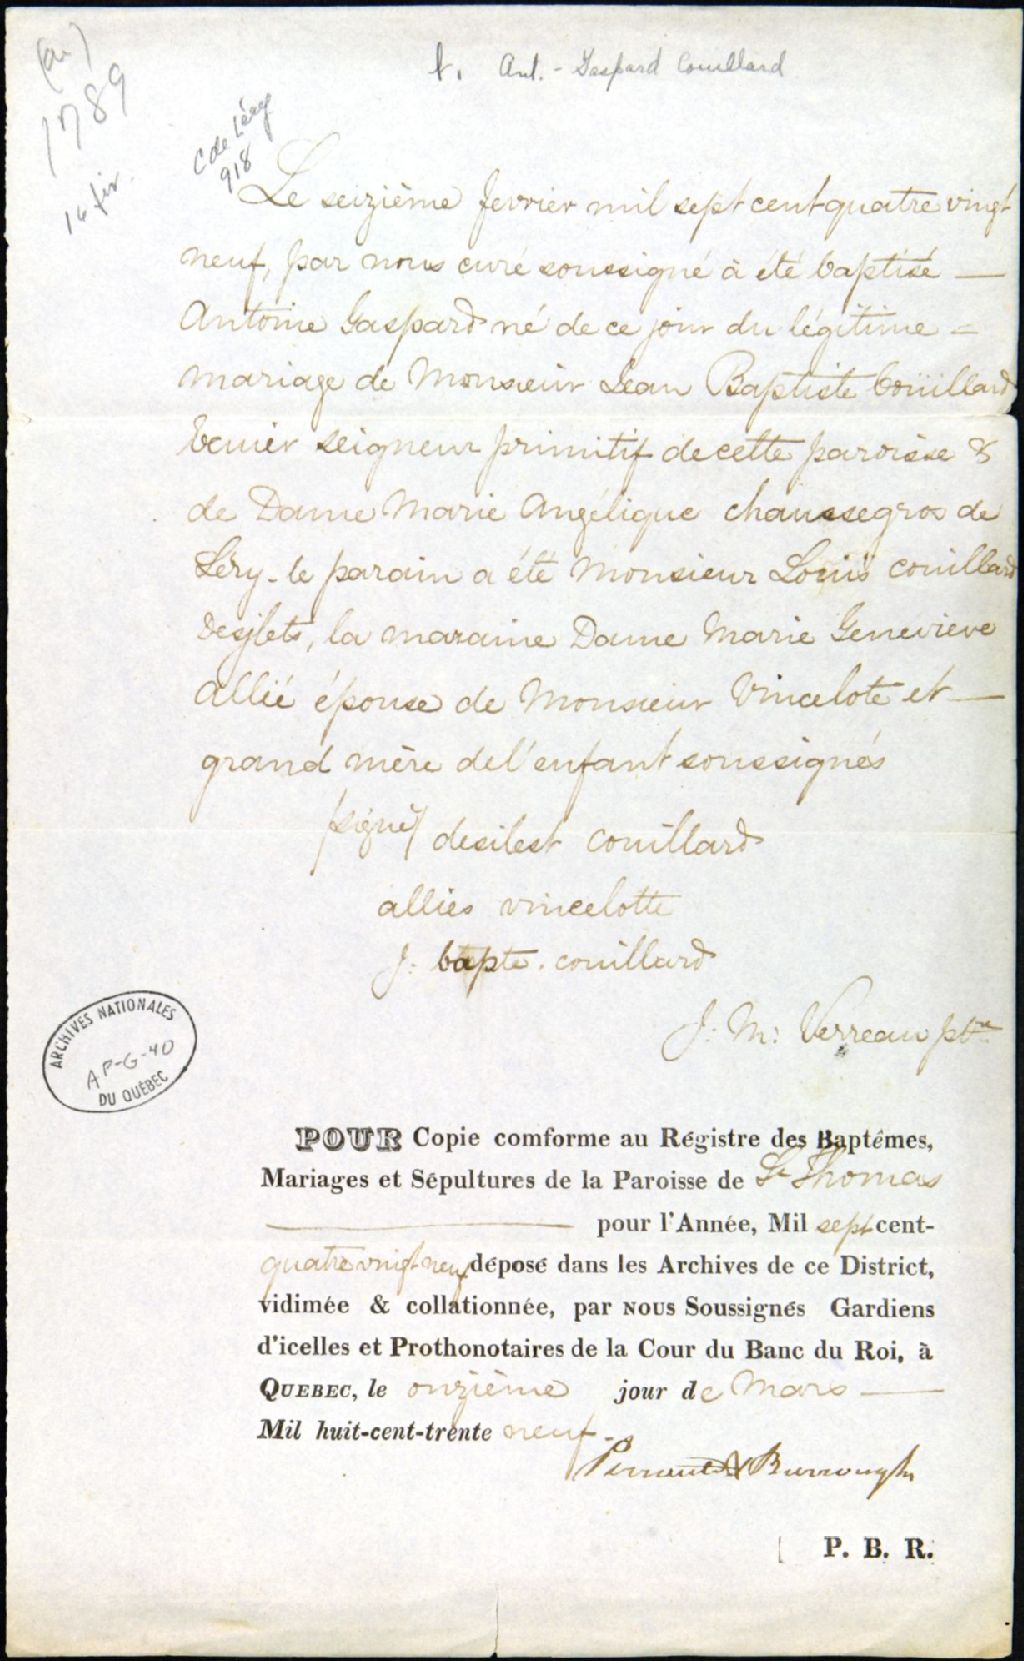 (a)
1789
16 fév.
b. Ant. - Gaspard Couillard
C de Léry
918
Le seizième fevrier mil sept cent quatre vingt
neuf, par nous curé soussigné à été baptisé —
Antoine Gaspard né de ce jour du légitime =
mariage de Monsieur Jean Baptiste Couillard
Ecuier seigneur primitif de cette paroisse &
de Dame Marie Angélique chaussegros de
Léry - le parain a été Monsieur Louis couillard
Desjlets, la maraine Dame Marie Genevieve
allié épouse de Monsieur Vincelote et —
grand mère de l'enfant soussignés
/signé/ desilest couillard
allies vincelotte
J: bapte. couillard
J: M: Verreau ptre
ARCHIVES NATIONALES
AP-G-40
DU QUÉBEC
POUR Copie comforme au Régistre des Baptêmes,
Mariages et Sépultures de la Paroisse de St Thomas
——— pour l'Année, Mil sept cent-
quatre vingt neuf déposé dans les Archives de ce District,
vidimée & collationnée, par NOUS Soussignés Gardiens
d'icelles et Prothonotaires de la Cour du Banc du Roi, à
QUEBEC, le onzième jour de Mars —
Mil huit-cent-trente neuf.-
Perrault & Burroughs
P. B. R.